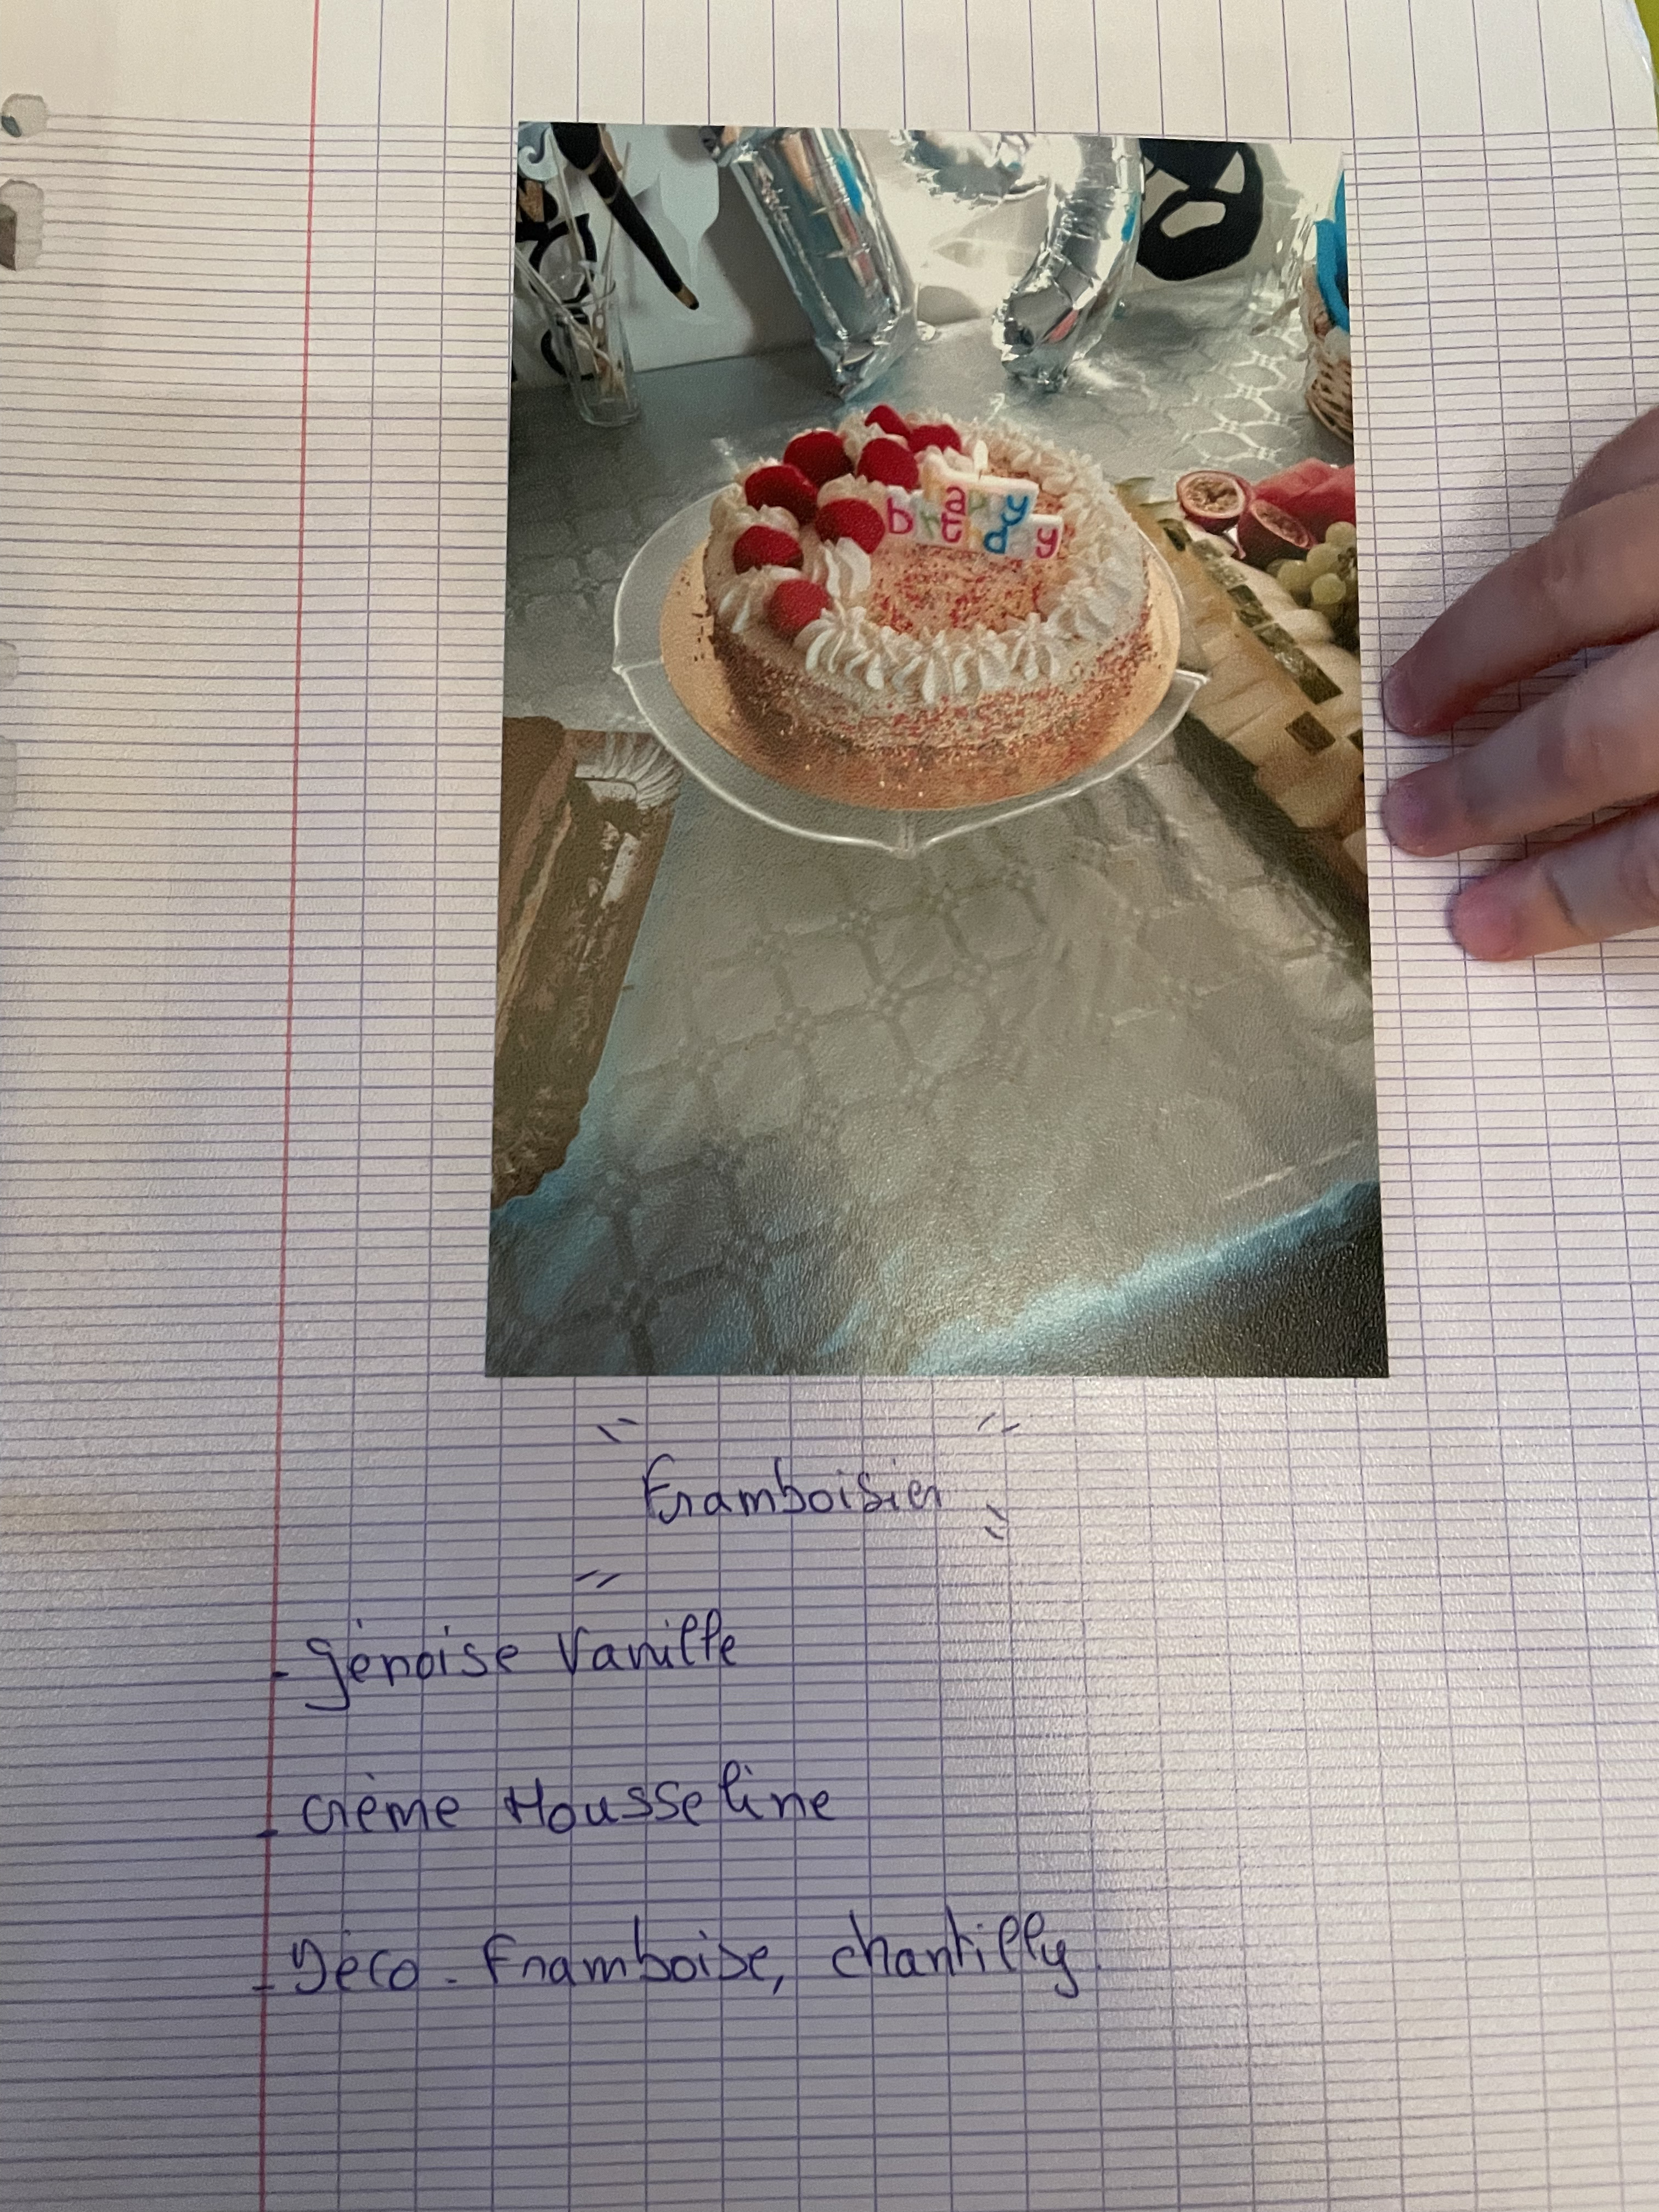 happy
birthday
"Framboisier"
- génoise Vanille
- crème Mousseline
- Déco - Framboise, chantilly